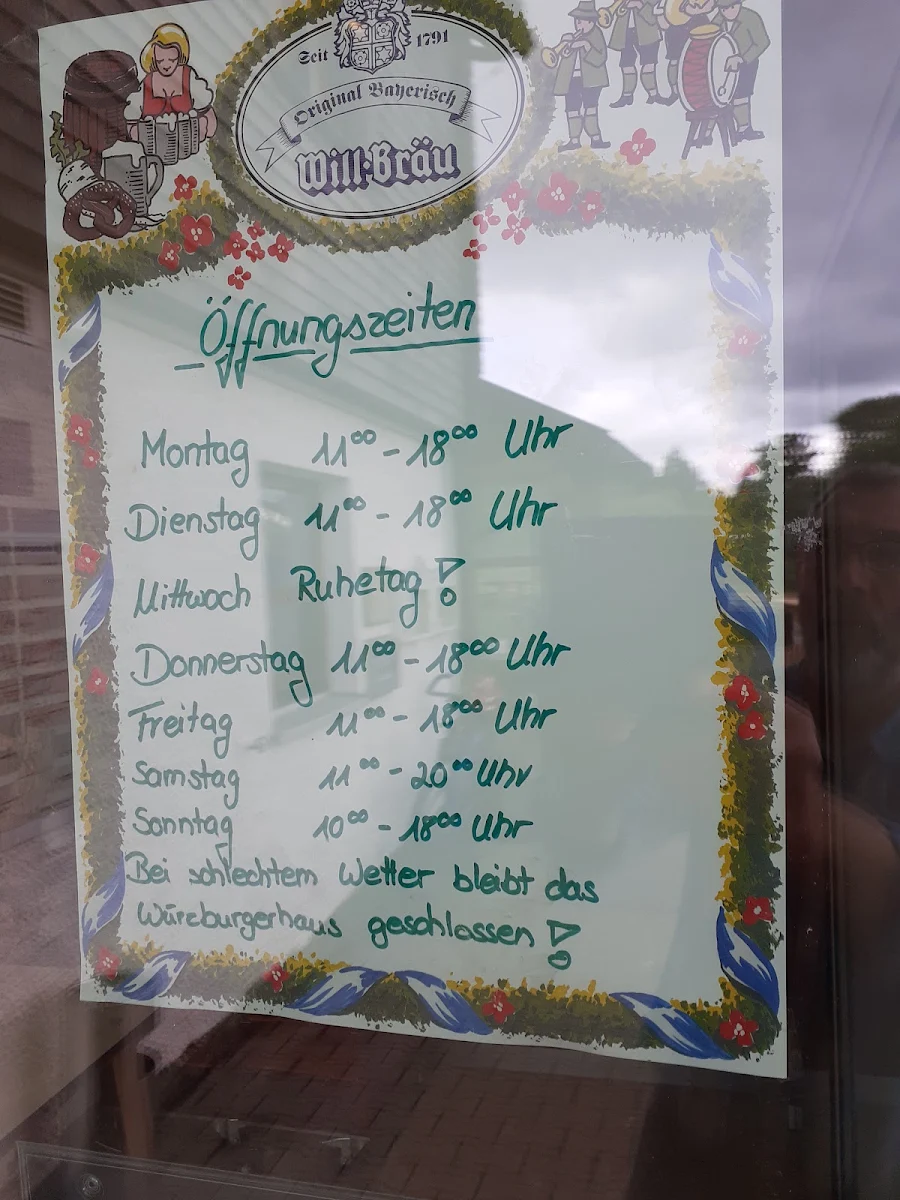 Seit 1791
Original Bayerisch
Will-Bräu
Öffnungszeiten
Montag 11⁰⁰ - 18⁰⁰ Uhr
Dienstag 11⁰⁰ - 18⁰⁰ Uhr
Mittwoch Ruhetag!
Donnerstag 11⁰⁰ - 18⁰⁰ Uhr
Freitag 11⁰⁰ - 18⁰⁰ Uhr
Samstag 11⁰⁰ - 20⁰⁰ Uhr
Sonntag 10⁰⁰ - 18⁰⁰ Uhr
Bei schlechtem Wetter bleibt das
Würzburgerhaus geschlossen!